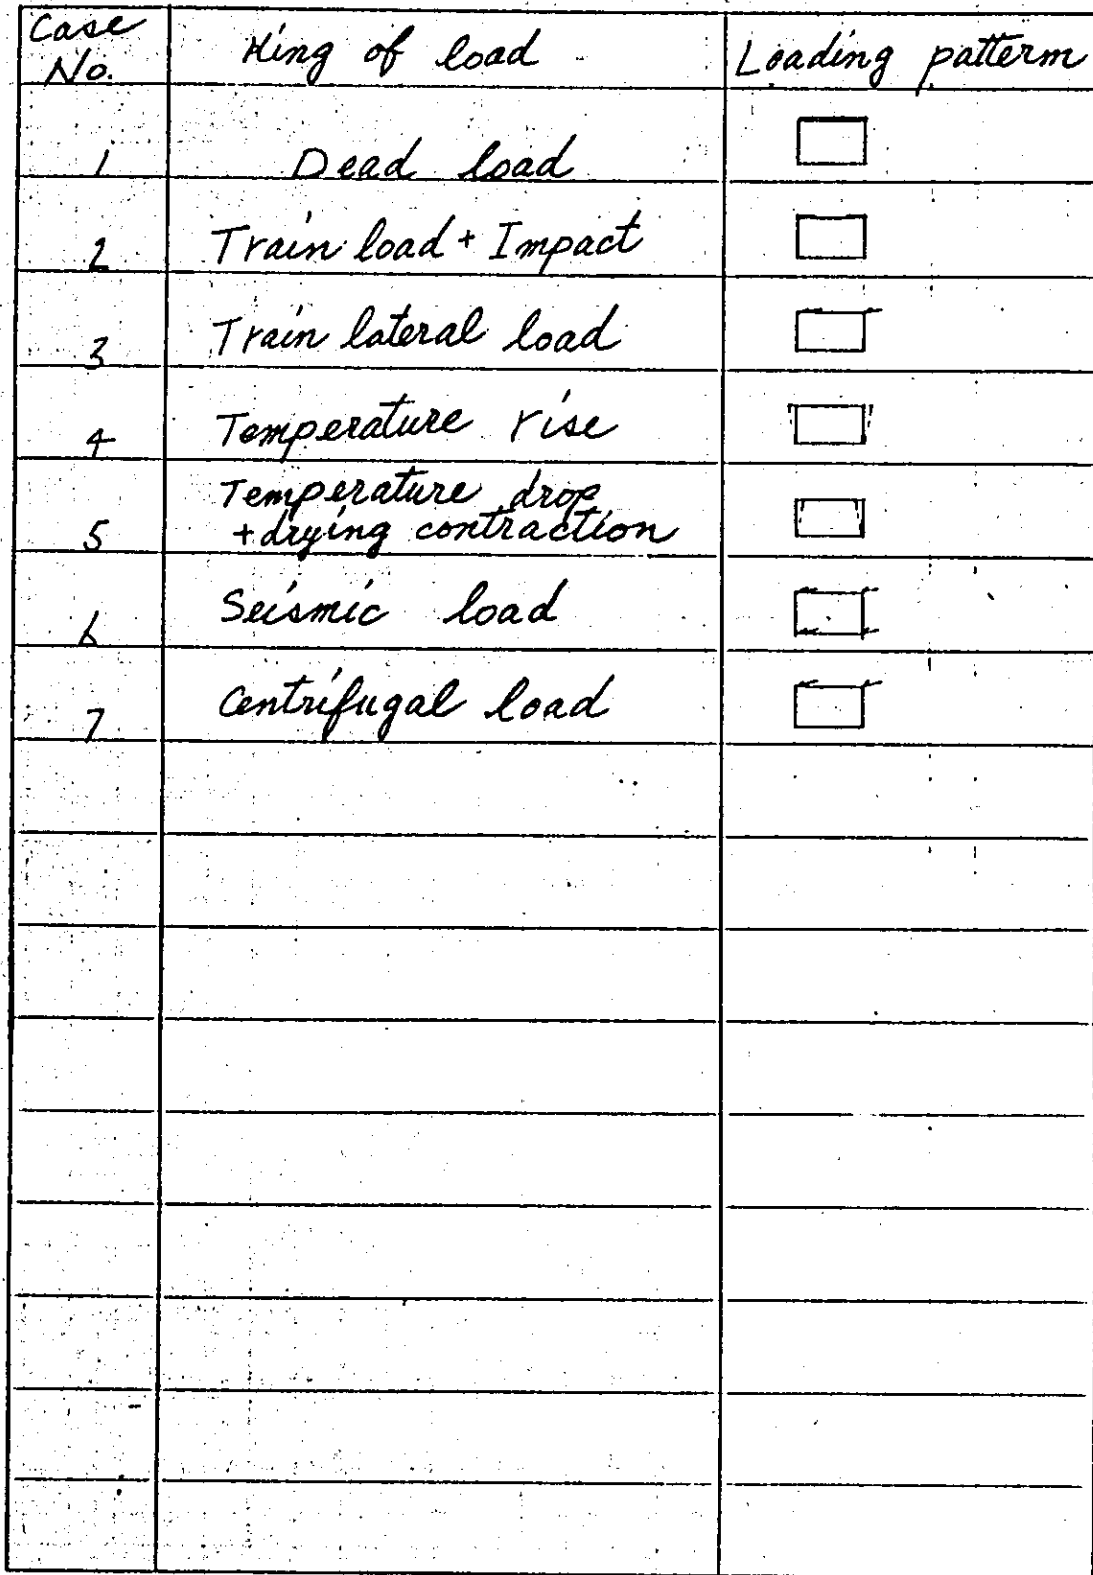 Case No.
King of load
Loading patterm
1 Dead load
2 Train load + Impact
3 Train lateral load
4 Temperature rise
Temperature drop
5 +drying contraction
6 Seismic load
7 Centrifugal load